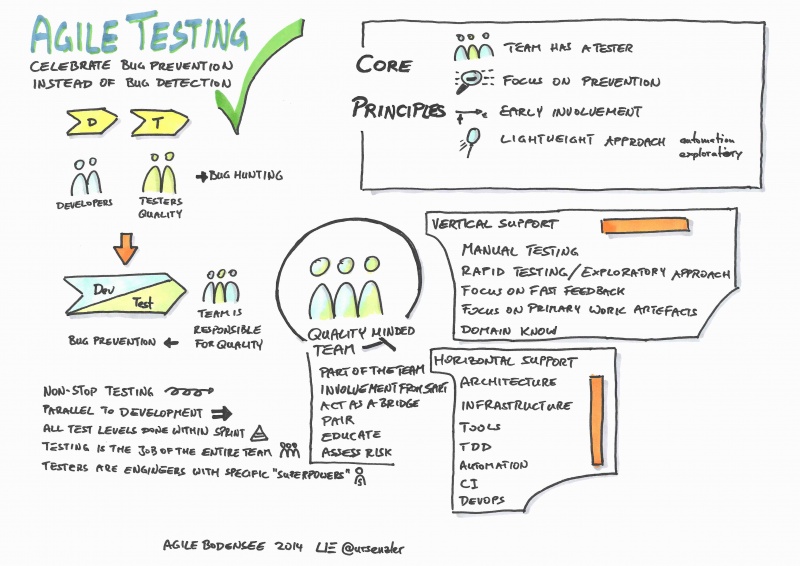 AGILE TESTING
CELEBRATE BUG PREVENTION
INSTEAD OF BUG DETECTION
D T
DEVELOPERS
TESTERS
QUALITY
BUG HUNTING
Dev
Test
TEAM IS
RESPONSIBLE
FOR QUALITY
BUG PREVENTION
NON-STOP TESTING
PARALLEL TO DEVELOPMENT
ALL TEST LEVELS DONE WITHIN SPRINT
TESTING IS THE JOB OF THE ENTIRE TEAM
TESTERS ARE ENGINGERS WITH SPECIFIC "SUPERPOWERS"
S
CORE
PRINCIPLES
TEAM HAS A TESTER
FOCUS ON PREVENTION
EARLY INVOLVEMENT
LIGHTWEIGHT APPROACH automation
exploratiory
QUALITY MINDED
TEAM
PART OF THE TEAM
INVOLVEMENT FROM START
ACT AS A BRIDGE
PAIR
EDUCATE
ASSESS RISK
VERTICAL SUPPORT
MANUAL TESTING
RAPID TESTING/EXPLORATORY APPROACH
FOCUS ON FAST FEEDBACK
FOCUS ON PRIMARY WORK ARTEFACTS
DOMAIN KNOW
HORIZONTAL SUPPORT
ARCHITECTURE
INFRASTRUCTURE
TOOLS
TDD
AUTOMATION
CI
DEVOPS
AGILE BODENSEE 2014 LIE @ursenzler